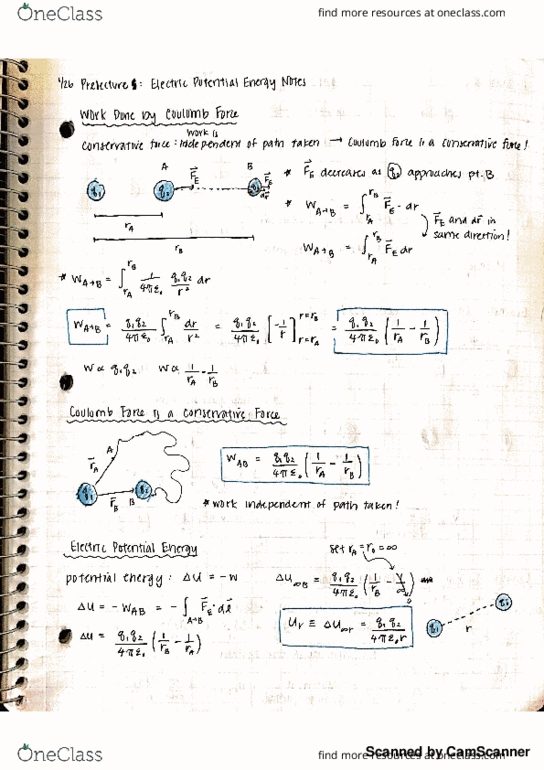 OneClass
find more resources at oneclass.com
1/26 Prelecture 5: Electric Potential Energy Notes
Work Done by Coulomb Force
work is
conservative force: independent of path taken → Coulomb Force is a conservative force!
A B
q₁ q₂ F⃗E q₂ F⃗E dr⃗
* F⃗E decreases as q₂ approaches pt. B
rA
rB
* WA→B = ∫rA^rB F⃗E · dr
F⃗E and dr⃗ in same direction!
WA→B = ∫rA^rB FE dr
* WA→B = ∫rA^rB 1/4πε₀ q₁q₂/r² dr
WA→B = q₁q₂/4πε₀ ∫rA^rB dr/r² = q₁q₂/4πε₀ [-1/r] r=rB r=rA = q₁q₂/4πε₀ (1/rA - 1/rB)
W ∝ q₁q₂ W ∝ 1/rA - 1/rB
Coulomb Force is a conservative Force
A
r⃗A
q₁ r⃗B B q₂
WAB = q₁q₂/4πε₀ (1/rA - 1/rB)
* work independent of path taken!
Electric Potential Energy
set rA = r₀ = ∞
potential energy: ΔU = -W
ΔU∞B = q₁q₂/4πε₀ (1/rB - 1/∞) 0
ΔU = -WAB = -∫A→B F⃗E · dl⃗
Ur ≡ ΔU∞r = q₁q₂/4πε₀r
q₁ r q₂
ΔU = q₁q₂/4πε₀ (1/rB - 1/rA)
Scanned by CamScanner
OneClass
find more resources at oneclass.com